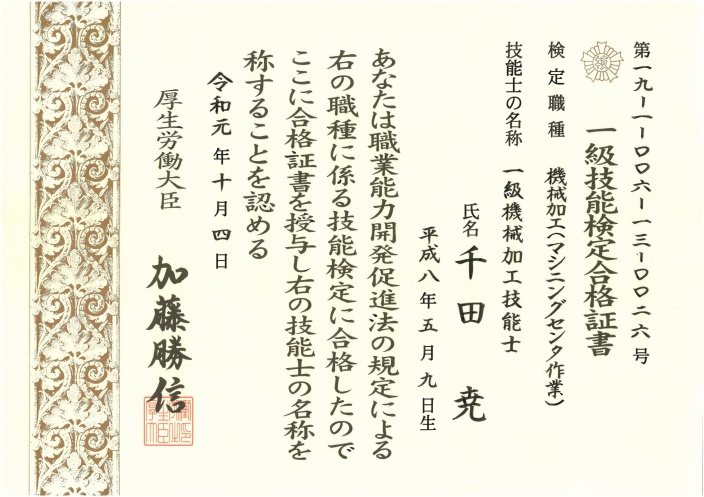 第一九ー一ー〇〇六ー一三ー〇〇二六号
一級技能検定合格証書
検定職種 機械加工(マシニングセンタ作業)
技能士の名称 一級機械加工技能士
氏名 千田 尭
平成八年五月九日生
あなたは職業能力開発促進法の規定による
右の職種に係る技能検定に合格したので
ここに合格証書を授与し右の技能士の名称を
称することを認める
令和元年十月四日
厚生労働大臣
加藤勝信